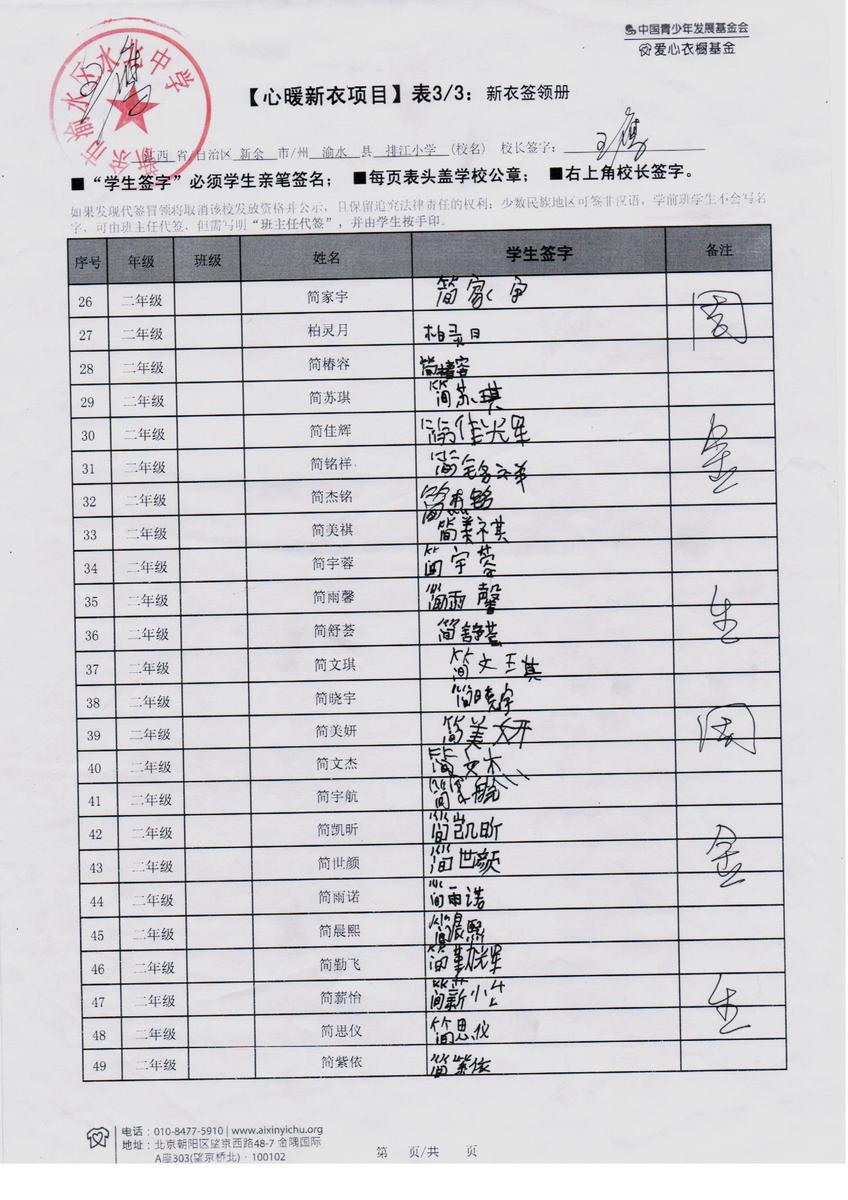 中国青少年发展基金会
爱心衣橱基金
【心暖新衣项目】表3/3：新衣签领册
江西 省/自治区 新余 市/州 渝水 县 排江小学 (校名) 校长签字：
■“学生签字”必须学生亲笔签名； ■每页表头盖学校公章； ■右上角校长签字。
如果发现代签冒领将取消该校发放资格并公示，且保留追究法律责任的权利；少数民族地区可签非汉语，学前班学生不会写名
字，可由班主任代签，但需写明“班主任代签”，并由学生按手印。
序号 年级 班级 姓名 学生签字 备注
26 二年级 简家宇 简家宇
27 二年级 柏灵月 柏灵月
28 二年级 简椿容 简椿容
29 二年级 简苏琪 简苏琪
30 二年级 简佳辉 简佳辉
31 二年级 简铭祥 简铭祥
32 二年级 简杰铭 简杰铭
33 二年级 简美祺 简美祺
34 二年级 简宇蓉 简宇蓉
35 二年级 简雨馨 简雨馨
36 二年级 简舒荟 简舒荟
37 二年级 简文琪 简文琪
38 二年级 简晓宇 简晓宇
39 二年级 简美妍 简美妍
40 二年级 简文杰 简文杰
41 二年级 简宇航 简宇航
42 二年级 简凯昕 简凯昕
43 二年级 简世颜 简世颜
44 二年级 简雨诺 简雨诺
45 二年级 简晨熙 简晨熙
46 二年级 简勤飞 简勤
47 二年级 简薪怡 简薪怡
48 二年级 简思仪 简思仪
49 二年级 简紫依 简紫依
电话：010-8477-5910 | www.aixinyichu.org
地址：北京朝阳区望京西路48-7 金隅国际
A座303(望京桥北) · 100102
第 页/共 页